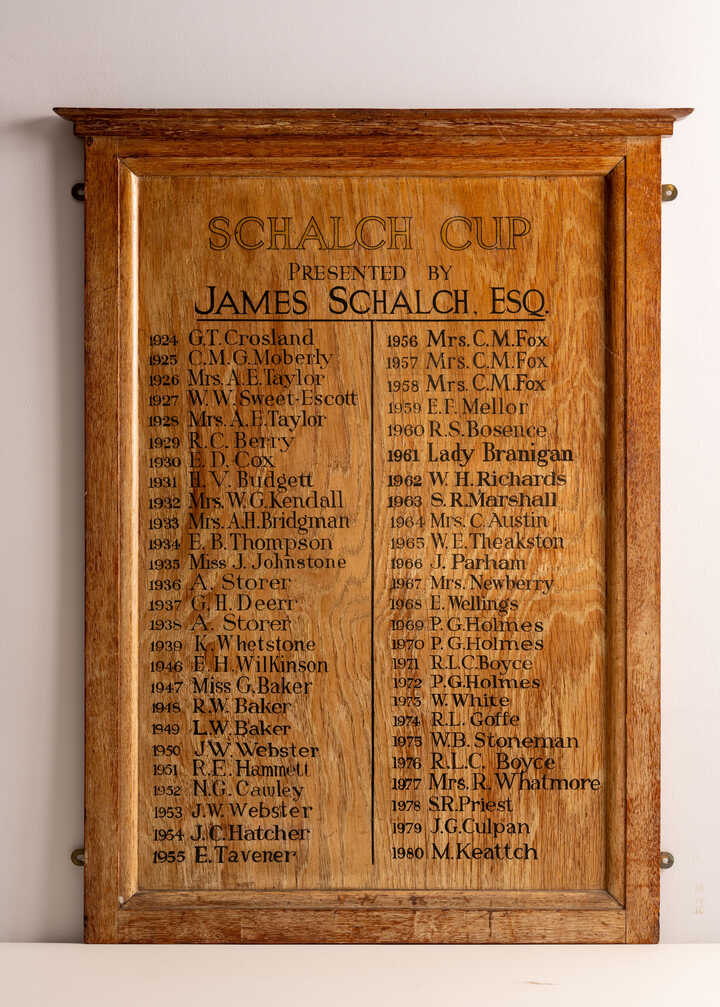 SCHALCH CUP
PRESENTED BY
JAMES SCHALCH, ESQ.
1924 G.T. Crosland
1925 C.M.G. Moberly
1926 Mrs. A.E. Taylor
1927 W.W. Sweet-Escott
1928 Mrs. A.E. Taylor
1929 R.C. Berry
1930 E.D. Cox
1931 H.V. Budgett
1932 Mrs. W.G. Kendall
1933 Mrs. A.H. Bridgman
1934 E.B. Thompson
1935 Miss J. Johnstone
1936 A. Storer
1937 G.H. Deerr
1938 A. Storer
1939 K. Whetstone
1946 E.H. Wilkinson
1947 Miss G. Baker
1948 R.W. Baker
1949 L.W. Baker
1950 J.W. Webster
1951 R.E. Hammett
1952 N.G. Cawley
1953 J.W. Webster
1954 J.C. Hatcher
1955 E. Tavener
1956 Mrs. C.M. Fox
1957 Mrs. C.M. Fox
1958 Mrs. C.M. Fox
1959 E.F. Mellor
1960 R.S. Bosence
1961 Lady Branigan
1962 W.H. Richards
1963 S.R. Marshall
1964 Mrs. C. Austin
1965 W.E. Theakston
1966 J. Parham
1967 Mrs. Newberry
1968 E. Wellings
1969 P.G. Holmes
1970 P.G. Holmes
1971 R.L.C. Boyce
1972 P.G. Holmes
1973 W. White
1974 R.L. Goffe
1975 W.B. Stoneman
1976 R.L.C. Boyce
1977 Mrs. R. Whatmore
1978 S.R. Priest
1979 J.G. Culpan
1980 M. Keattch